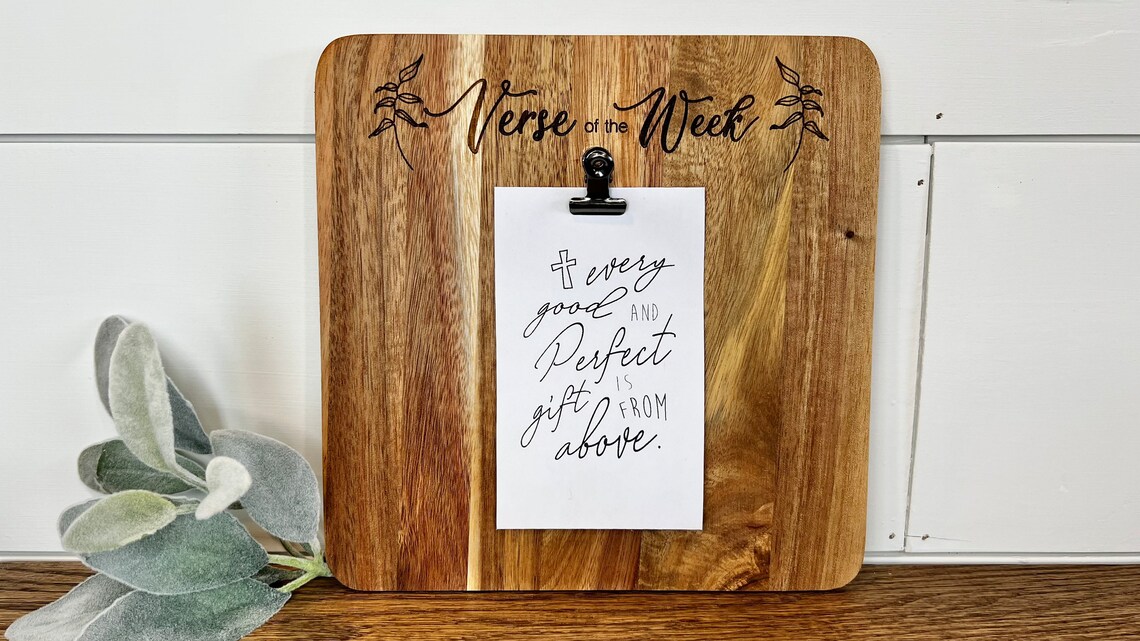 Verse of the Week
every
good AND
Perfect
gift IS
FROM
above.